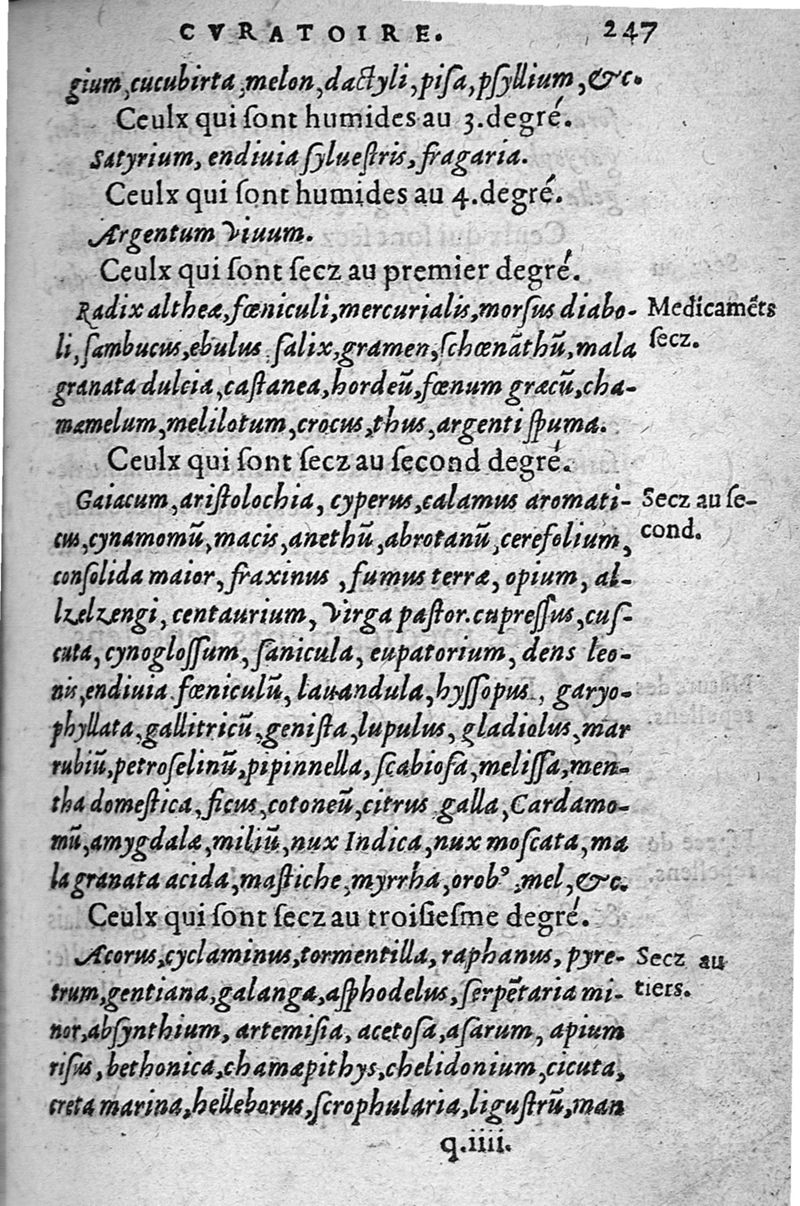 CVRATOIRE. 247
gium, cucubirta, melon, dactyli, pisa, psyllium, &c.
Ceulx qui ſont humides au 3. degré.
Satyrium, endiuia ſylueſtris, fragaria.
Ceulx qui ſont humides au 4. degré.
Argentum viuum.
Ceulx qui ſont ſecz au premier degré.
Radix altheæ, fœniculi, mercurialis, morſus diabo-
Medicamẽts
li, ſambucus, ebulus ſalix, gramen, ſchœnãthũ, mala
ſecz.
granata dulcia, caſtanea, hordeũ, fœnum græcũ, cha-
mæmelum, melilotum, crocus, thus, argenti ſpuma.
Ceulx qui ſont ſecz au ſecond degré.
Gaiacum, ariſtolochia, cyperus, calamus aromati-
Secz au ſe-
cus, cynamomũ, macis, anethũ, abrotanũ, cerefolium,
cond.
conſolida maior, fraxinus, fumus terræ, opium, al-
lzelzengi, centaurium, Virga paſtor. cupreſſus, cuſ-
cuta, cynogloſſum, ſanicula, eupatorium, dens leo-
nis, endiuia fœniculũ, lauandula, hyſſopus, garyo-
phyllata, gallitricũ, geniſta, lupulus, gladiolus, mar
rubiũ, petroſelinũ, pipinnella, ſcabioſa, meliſſa, men-
tha domeſtica, ficus, cotoneũ, citrus galla, Cardamo-
mũ, amygdalæ, miliũ, nux Indica, nux moſcata, ma
la granata acida, maſtiche, myrrha, orobꝰ, mel, &c.
Ceulx qui ſont ſecz au troiſieſme degré.
Acorus, cyclaminus, tormentilla, raphanus, pyre-
Secz au
trum, gentiana, galanga, aſphodelus, ſerpẽtaria mi-
tiers.
nor, abſynthium, artemiſia, acetoſa, aſarum, apium
riſus, bethonica, chamæpithys, chelidonium, cicuta,
creta marina, helleborus, ſcrophularia, liguſtrũ, man
q.iiii.